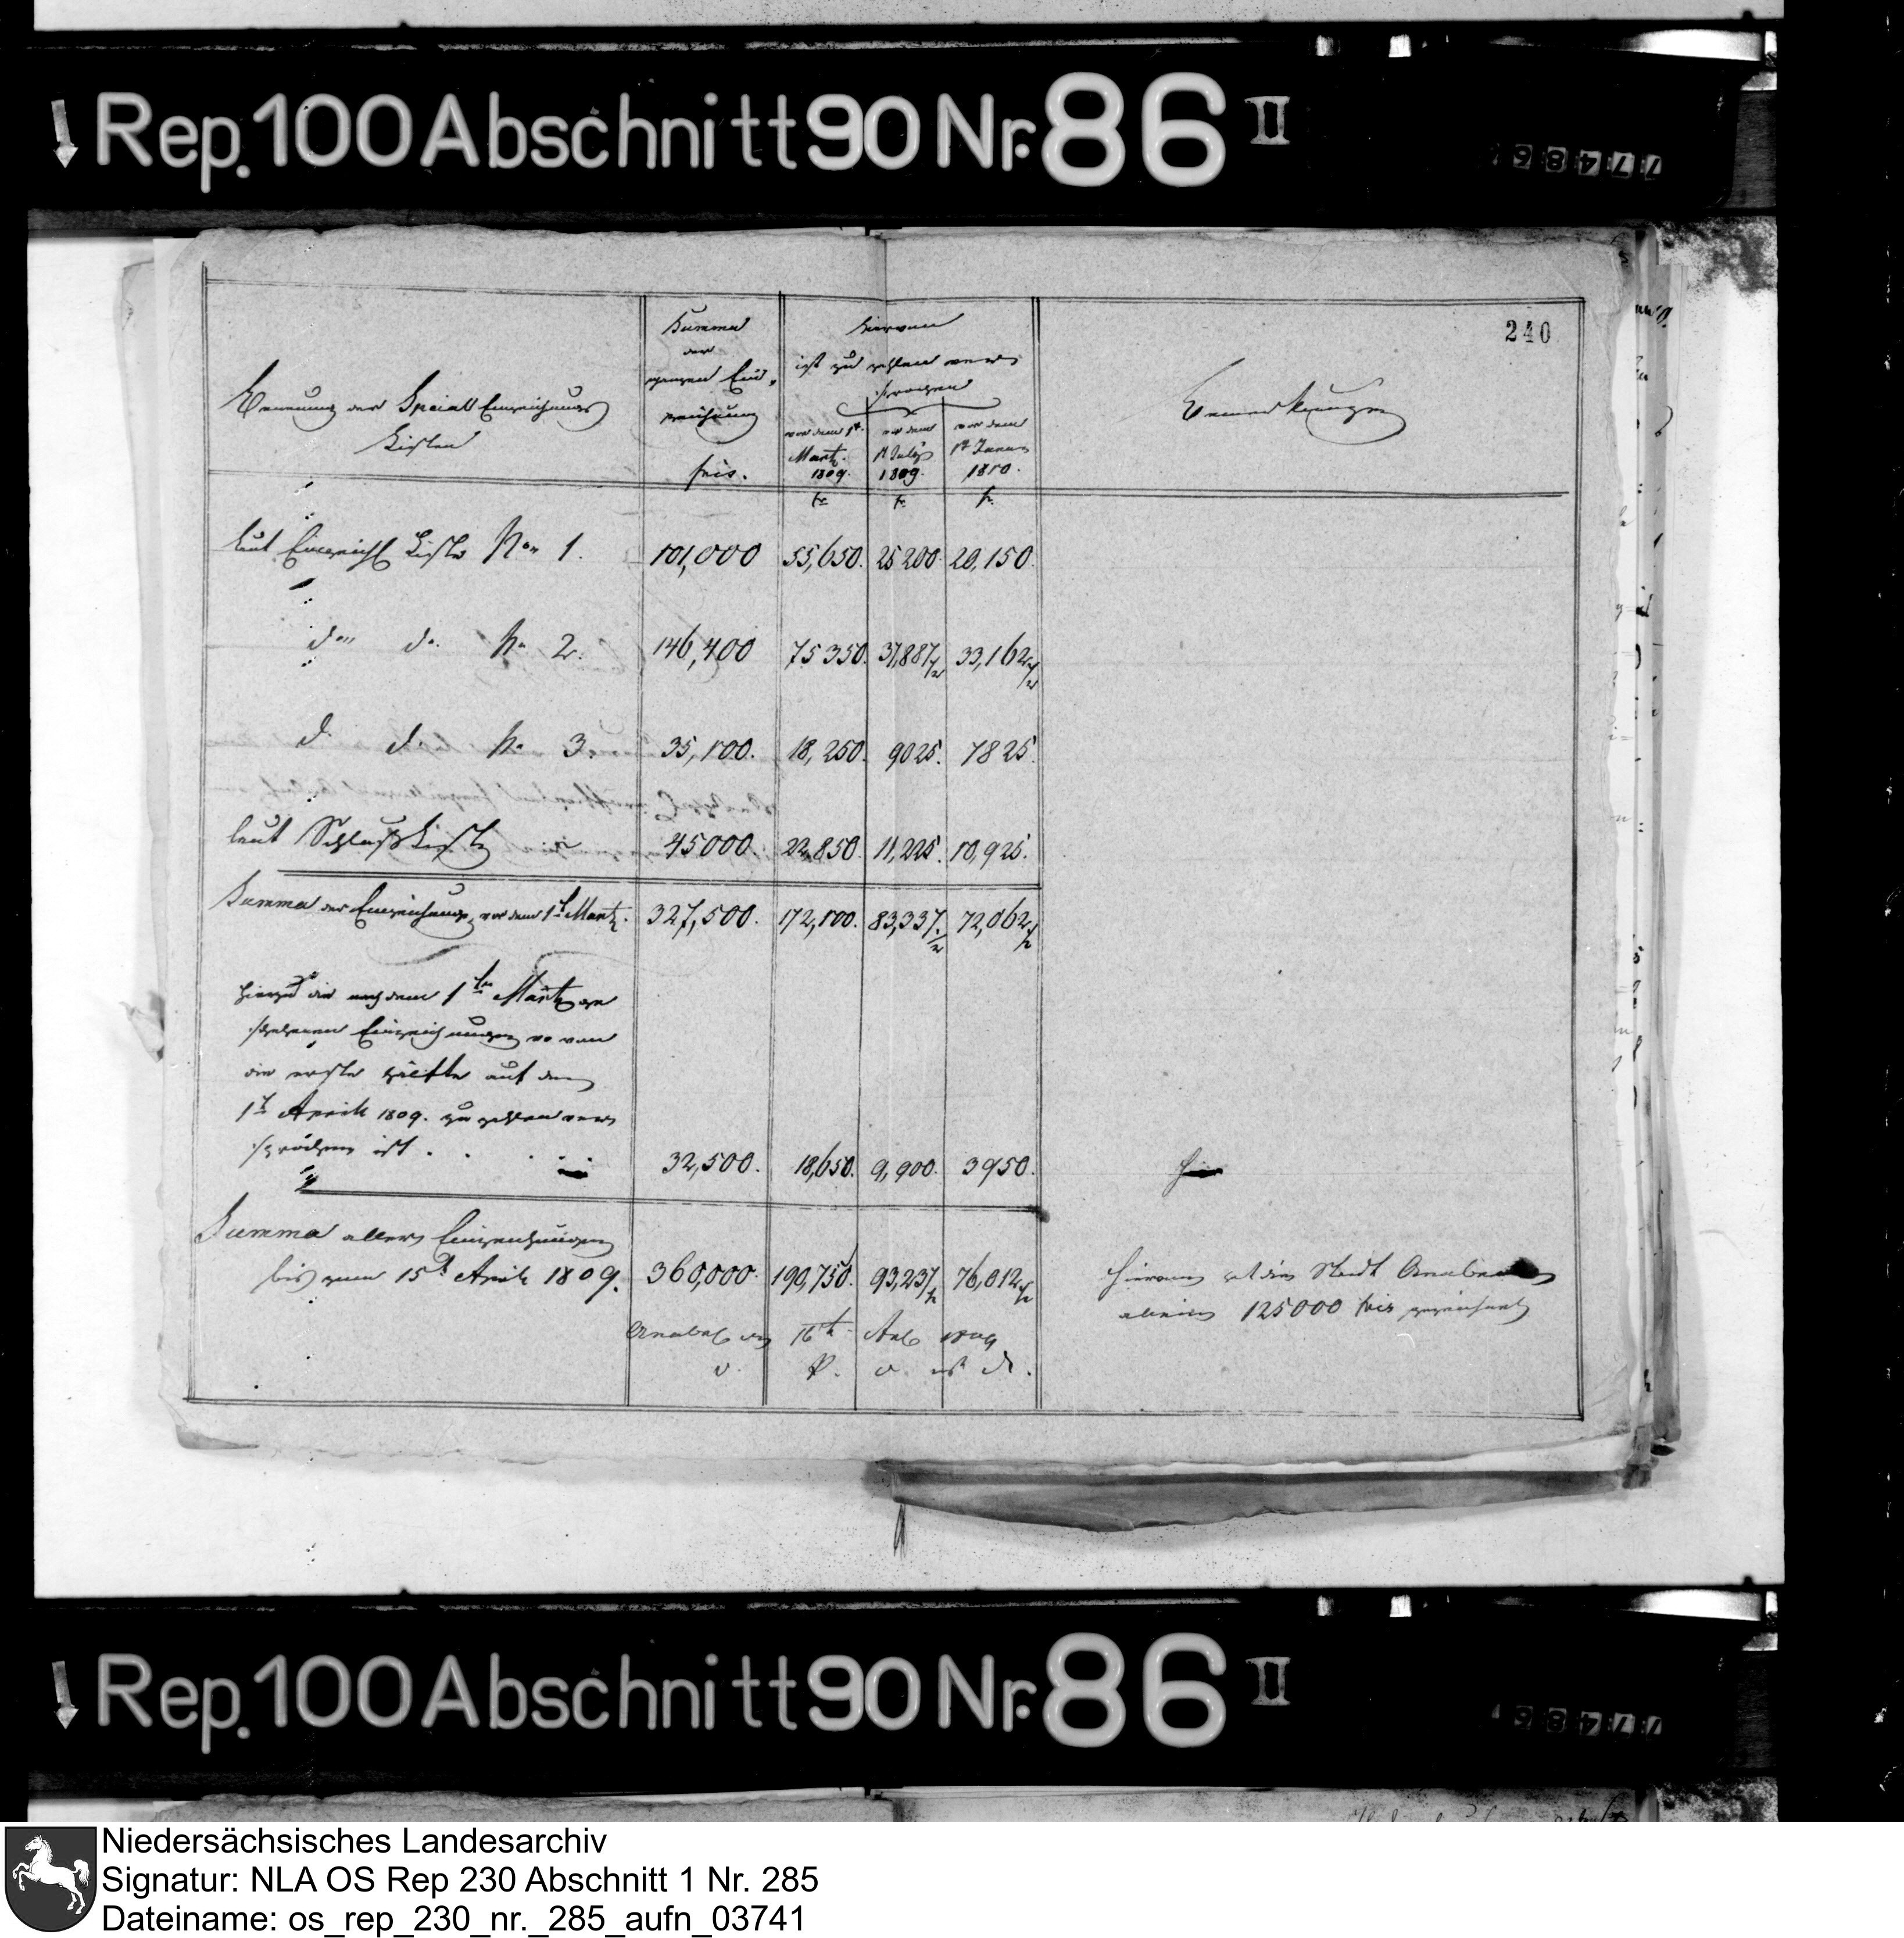 Rep. 100 Abschnitt 90 Nr. 86 II
77486
240
Benennung der Special Einzeichnungs
Listen
Summa
der
ganzen Ein,,
zeichnung
frcs.
hiervon
ist zu zahlen ver
sprochen
vor dem 1t.
Martz.
1809.
fr.
vor dem
1t July
1809.
fr.
vor dem
1t Januar
1810.
fr.
Bemerkungen
laut Einzeichn. Liste No. 1. 101,000 55,650. 25 200. 20,150.
do. do. No. 2. 146,400 75 350. 37,887 1/2 33,162 1/2
d. d. No. 3. 35,100. 18,250. 9025. 7825.
laut Schluß Liste 45000. 22,850. 11,225. 10,925.
Summa der Einzeichnung vor dem 1t Martz. 327,500. 172,100. 83,337. 1/2 72,062 1/2
hierzu die nach dem 1ten Martz ge
schehenen Einzeichnungen wovon
die erste Hälfte auf den
1t Aprill 1809. zu zahlen ver
sprochen ist . . . . 32,500. 18,650. 9,900. 3950.
Summa aller Einzeichnungen
bis zum 15t April 1809. 360,000. 190,750. 93,237 1/2 76,012 1/2
hiervon hat die Stadt
allein 125000 frcs gezeichnet
16t 1809
Rep. 100 Abschnitt 90 Nr. 86 II
77486
Niedersächsisches Landesarchiv
Signatur: NLA OS Rep 230 Abschnitt 1 Nr. 285
Dateiname: os_rep_230_nr._285_aufn_03741